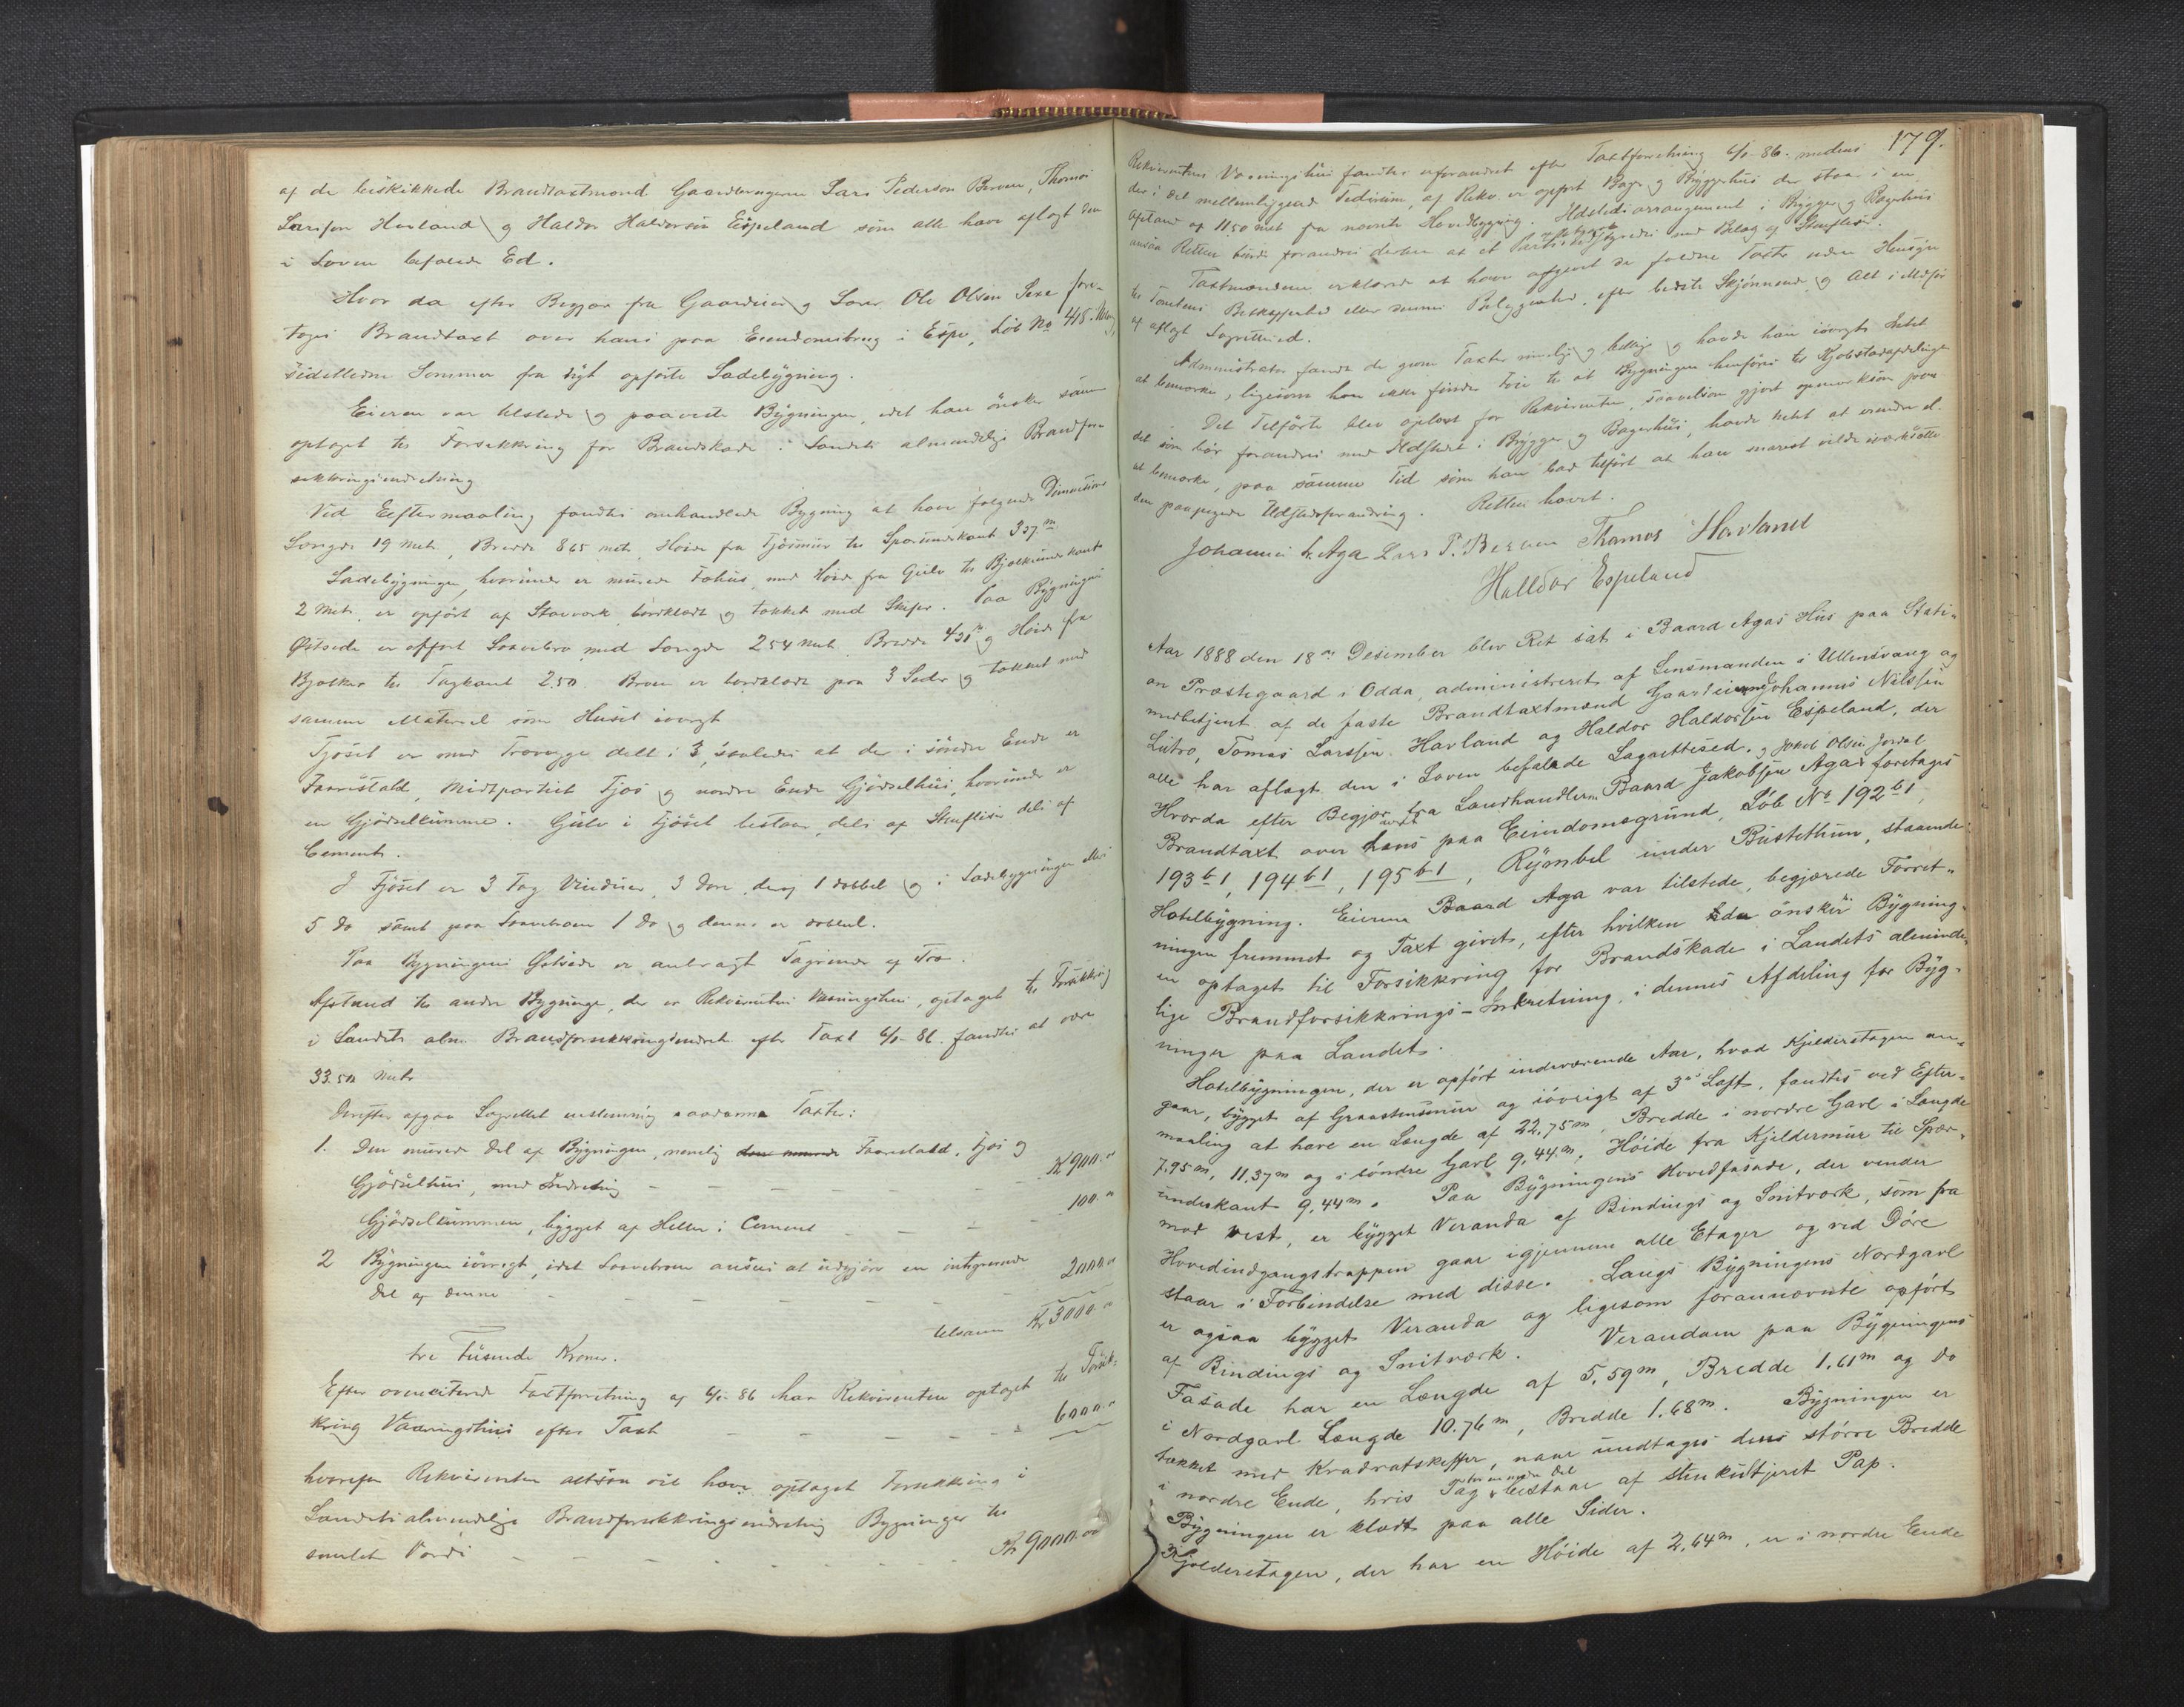 af de beskikkede Brandtaxtmænd Gaardbrugerne Lars Pederson Berven, Thomas
Larsson Havland og Haldor Haldorson Espeland som alle have aflagt den
i Loven befalede Ed.
Hvor da efter Begjær fra Gaardeier og Ole Olsen Sexe fore-
toges Brandtaxt over hans paa Eiendomsbrug i Espe, Løb No 415.
sidstledne Sommer fra nyt opførte Ladebygning.
Eieren var tilstede og paaviste Bygningen, idet han ønsker samme
optaget til Forsikkring for Brandskade i Landets almindelige Brandfor-
sikkringsindretning
Ved Eftermaaling fandtes omhandlede Bygning at have følgende Dimensioner
Længde 19 Metr, Bredde 865 metr, Høide fra Fjøsmur til Sparunderkant 337 m
Ladebygningen, hvorunder er murede Fæhus med Høide fra Gulv til Bjælkeunderkant
2 Metr, er opført af Stavværk bordklædt og tækket med Skifer. Paa Bygningens
Østside er opført Laavebro med Længde 254 Metr Bredde 431 m og Høide fra
Bjælker til Tagkant 2.50. Broen er bordklædt paa 3 Sider og tækket med
samme Materiel som Huset iøvrigt
Fjøset er med Trævægge delt i 3, saaledes at der i søndre Ende er
Faarestald, Midtpartiet Fjøs og nordre Ende Gjødselhus, hvorunder er
en Gjødselkumme. Gulv i Fjøset bestaar dels af Skuffliser dels af
Cement.
I Fjøset er 3 Fag Vinduer, 3 Døre, deraf 1 dobbel og i Ladebygningen ellers
5 do samt paa Laavebroen 1 do og denne er dobbel.
Paa Bygningens Østside er anbragt Tagrende af Træ.
Afstand til andre Bygninger, der er Rekvirentens Vaaningshus, optaget til Forsikkring
i Landets alm. Brandforsikkringsindretn. efter Taxt 6/9-86. fandtes at være
33.50 Metr
Derefter afgav Lagrettet enstemmig saadanne Taxter:
1. Den murede Del af Bygningen, nemlig den murede Faarestald, Fjøs og
Gjødselhus, med Indretning - - - - Kr 900.00
Gjødselkummen, bygget af Heller i Cement - - - 100.00
2 Bygningen iøvrigt, idet Laavebroen ansees at udgjøre en integrerende
Del af denne - - - - - 2000.00
tilsam. Kr 3000.00
tre Tusende Kroner.
Efter ovenciterede Taxtforretning af 6/9-86 har Rekvirenten optaget til Forsik-
kring Vaaningshus efter Taxt - - - - - 6000.00
hvorefter Rekvirenten altsaa vil have optaget Forsikkring i
Landets almindelige Brandforsikkringsindretning Bygninger til
samlet Værdi - - - - - Kr 9000.00
179.
Rekvirentens Vaaningshus fandtes uforandret efter Taxtforretning 6/9-86. medens
der i det mellemliggende Tidsrum, af Rekv. er opført Bage og Bryggerhus der staar i en
Afstand af 11.50 Met fra nævnte Hovedbygning. Ildstedsarrangement i Brygge og Bagerhus
ansaa Retten burde forandres derhen at et med Belag af Skuffliser.
Taxtmændene erklærede at have afgivet de foldne Taxter uden Hensyn
til Tomtens Beskaffenhed eller dennes Beliggenhed, efter bedste Skjønnende og Alt i Medfør
af aflagt Lagrettesed.
Administrator fandt de givne Taxter rimelige og billige og havde han iøvrigt Intet
at bemærke, ligesom han ikke finder Føie til at Bygningen henføres til Kjøbstadafdelingen
Det Tilførte blev oplæst for Rekvirenten, saavelsom gjort opmærksom paa
det som bør forandres med Ildstedet i Brygge og Bagerhus, havde Intet at erindre el.
at bemærke, paa samme Tid som han bad tilført at han snarest vilde iværksætte
den paapegede Ildstedsforandring. Retten hævet.
Johannes L. Aga Lars P. Berven Thomas Havland
Halldor Espeland
Aar 1888 den 18de Desember blev Ret sat i Baard Agas Hus paa Stati-
on Præstegaard i Odda, administreret af Lensmanden i Ullensvang og
medbetjent af de faste Brandtaxtmænd Gaardeierne Johannes Nilssen
Lutro, Tomas Larssen Havland og Haldor Haldorssen Espeland, der
alle har aflagt den i Loven befalede Lagrettesed. og Jakob Olsen Jordal
Hvorda efter Begjær fra Landhandler Baard Jakobssen Aga foretages
Brandtaxt over hans paa Eiendomsgrund, Løb No 192 b1,
193 b1, 194 b1, 195 b1, Rymbel under Bustethun, staaende
Hotelbygning. Eieren Baard Aga var tilstede, begjærede Forret-
ningen fremmet og Taxt givet, efter hvilken han ønsker Bygning-
en optaget til Forsikkring for Brandskade i Landets alminde-
lige Brandforsikkrings-Indretning, i dennes Afdeling for Byg-
ninger paa Landet.
Hotelbygningen, der er opført indeværende Aar, hvad Kjelderetagen an-
gaar, bygget af Graastensmur og iøvrigt af 3de Loft, fandtes ved Efter-
maaling at have en Længde af 22,75m, Bredde i nordre Gavl i Længde
7,95m, 11,37m og i søndre Gavl 9,44m, Høide fra Kjeldermur til Spær-
underkant 9,44m. Paa Bygningens Hovedfasade, der vender
mod vest, er bygget Veranda af Bindings og Snitværk, som fra
Hovedindgangstrappen gaar igjennem alle Etager og ved Døre
staar i Forbindelse med disse. Langs Bygningens Nordgavl
er ogsaa bygget Veranda og ligesom førannævnte opført
af Bindings og Snitværk. Verandaen paa Bygningens
Fasade har en Længde af 5,59m, Bredde 1,61m og do
i Nordgavl Længde 10.76m, Bredde 1.68m. Bygningen er
tækket med Kvadratskiffer, naar undtages dens større Bredde
i nordre Ende, hvis Tag for en nedre Del bestaar af stenkultjæret Pap.
Bygningen er klædt paa alle Sider.
Kjelderetagen, der har en Høide af 2,64m, er i nordre Ende